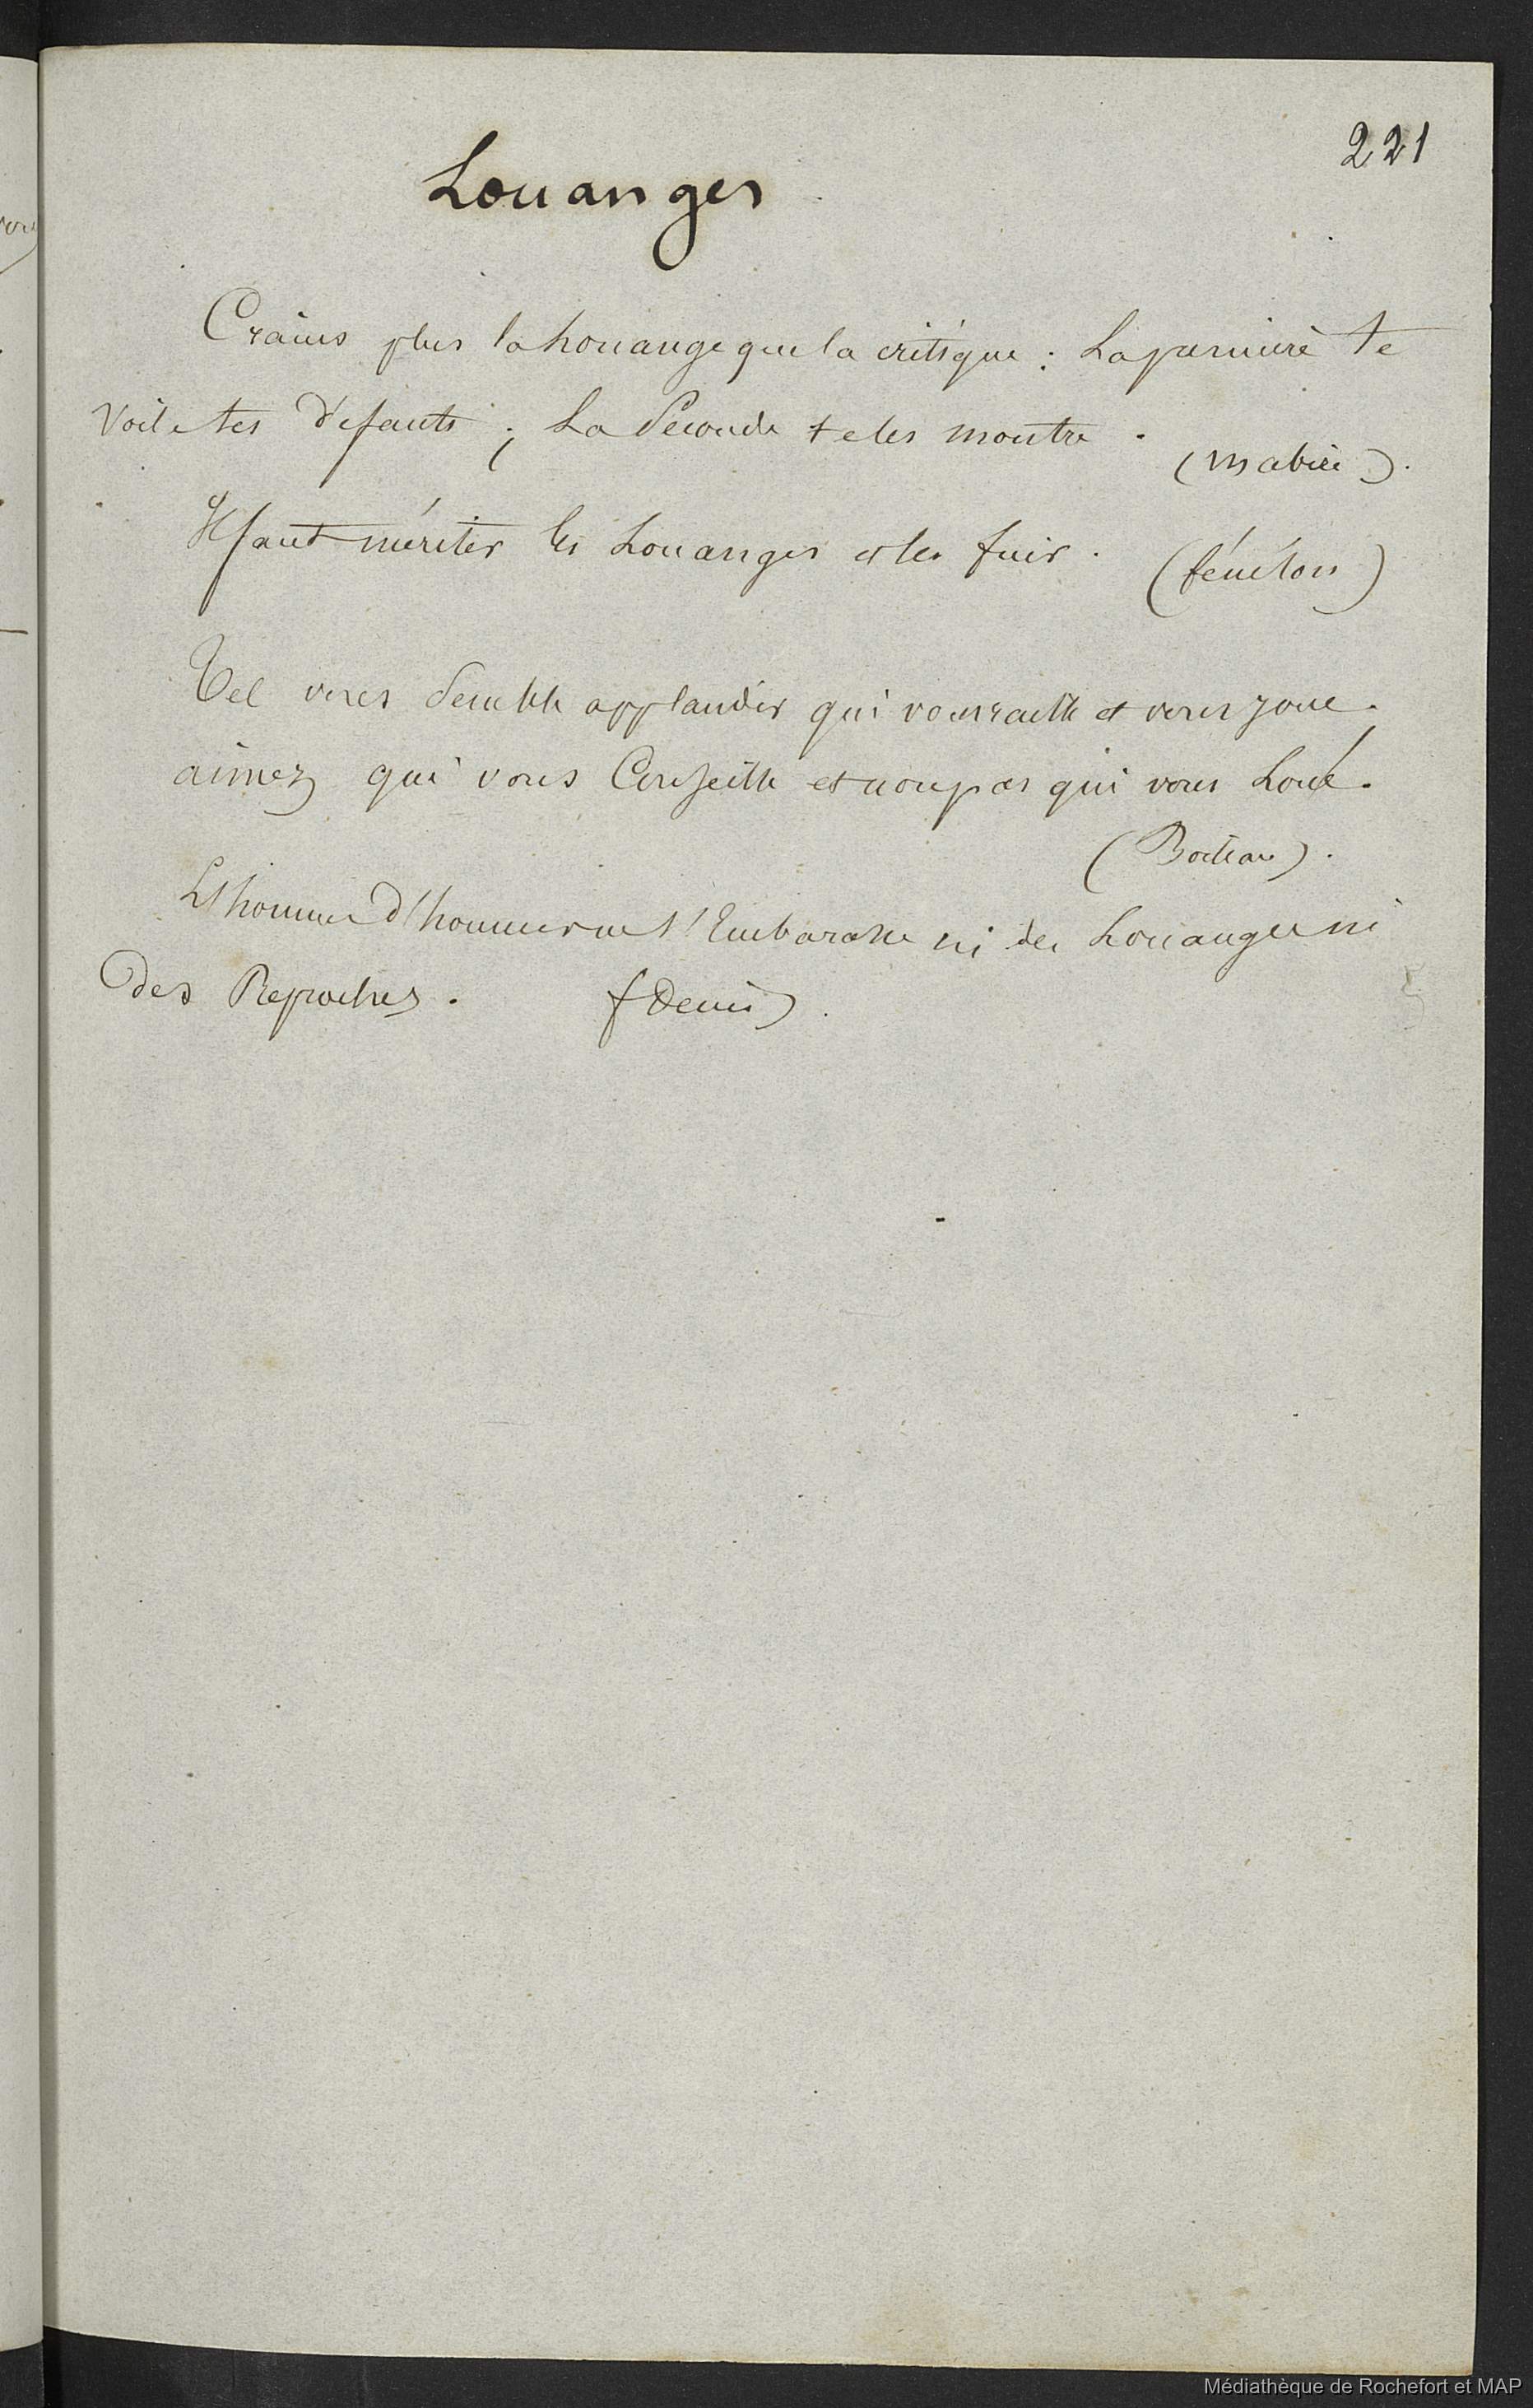 221
Louanges
Crains plus la Louange que la critique : La première te
voile tes défauts ; La Seconde te les montre .
(Mabire).
Il faut mériter les Louanges et les fuir .
(fénélon)
Tel vous Semble applaudir qui vous raille et vous joue.
aimez qui vous Conseille et non pas qui vous Loue.
(Boileau).
L'homme d'honneur ne s'Embarasse ni des Louanges ni
des Reproches .
(Denis).
Médiathèque de Rochefort et MAP